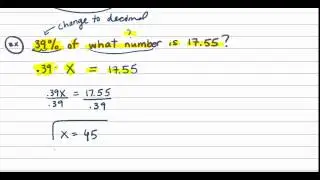 change to decimal
?
ex 39% of what number is 17.55?
.39 · X = 17.55
.39x = 17.55
.39 .39
x = 45